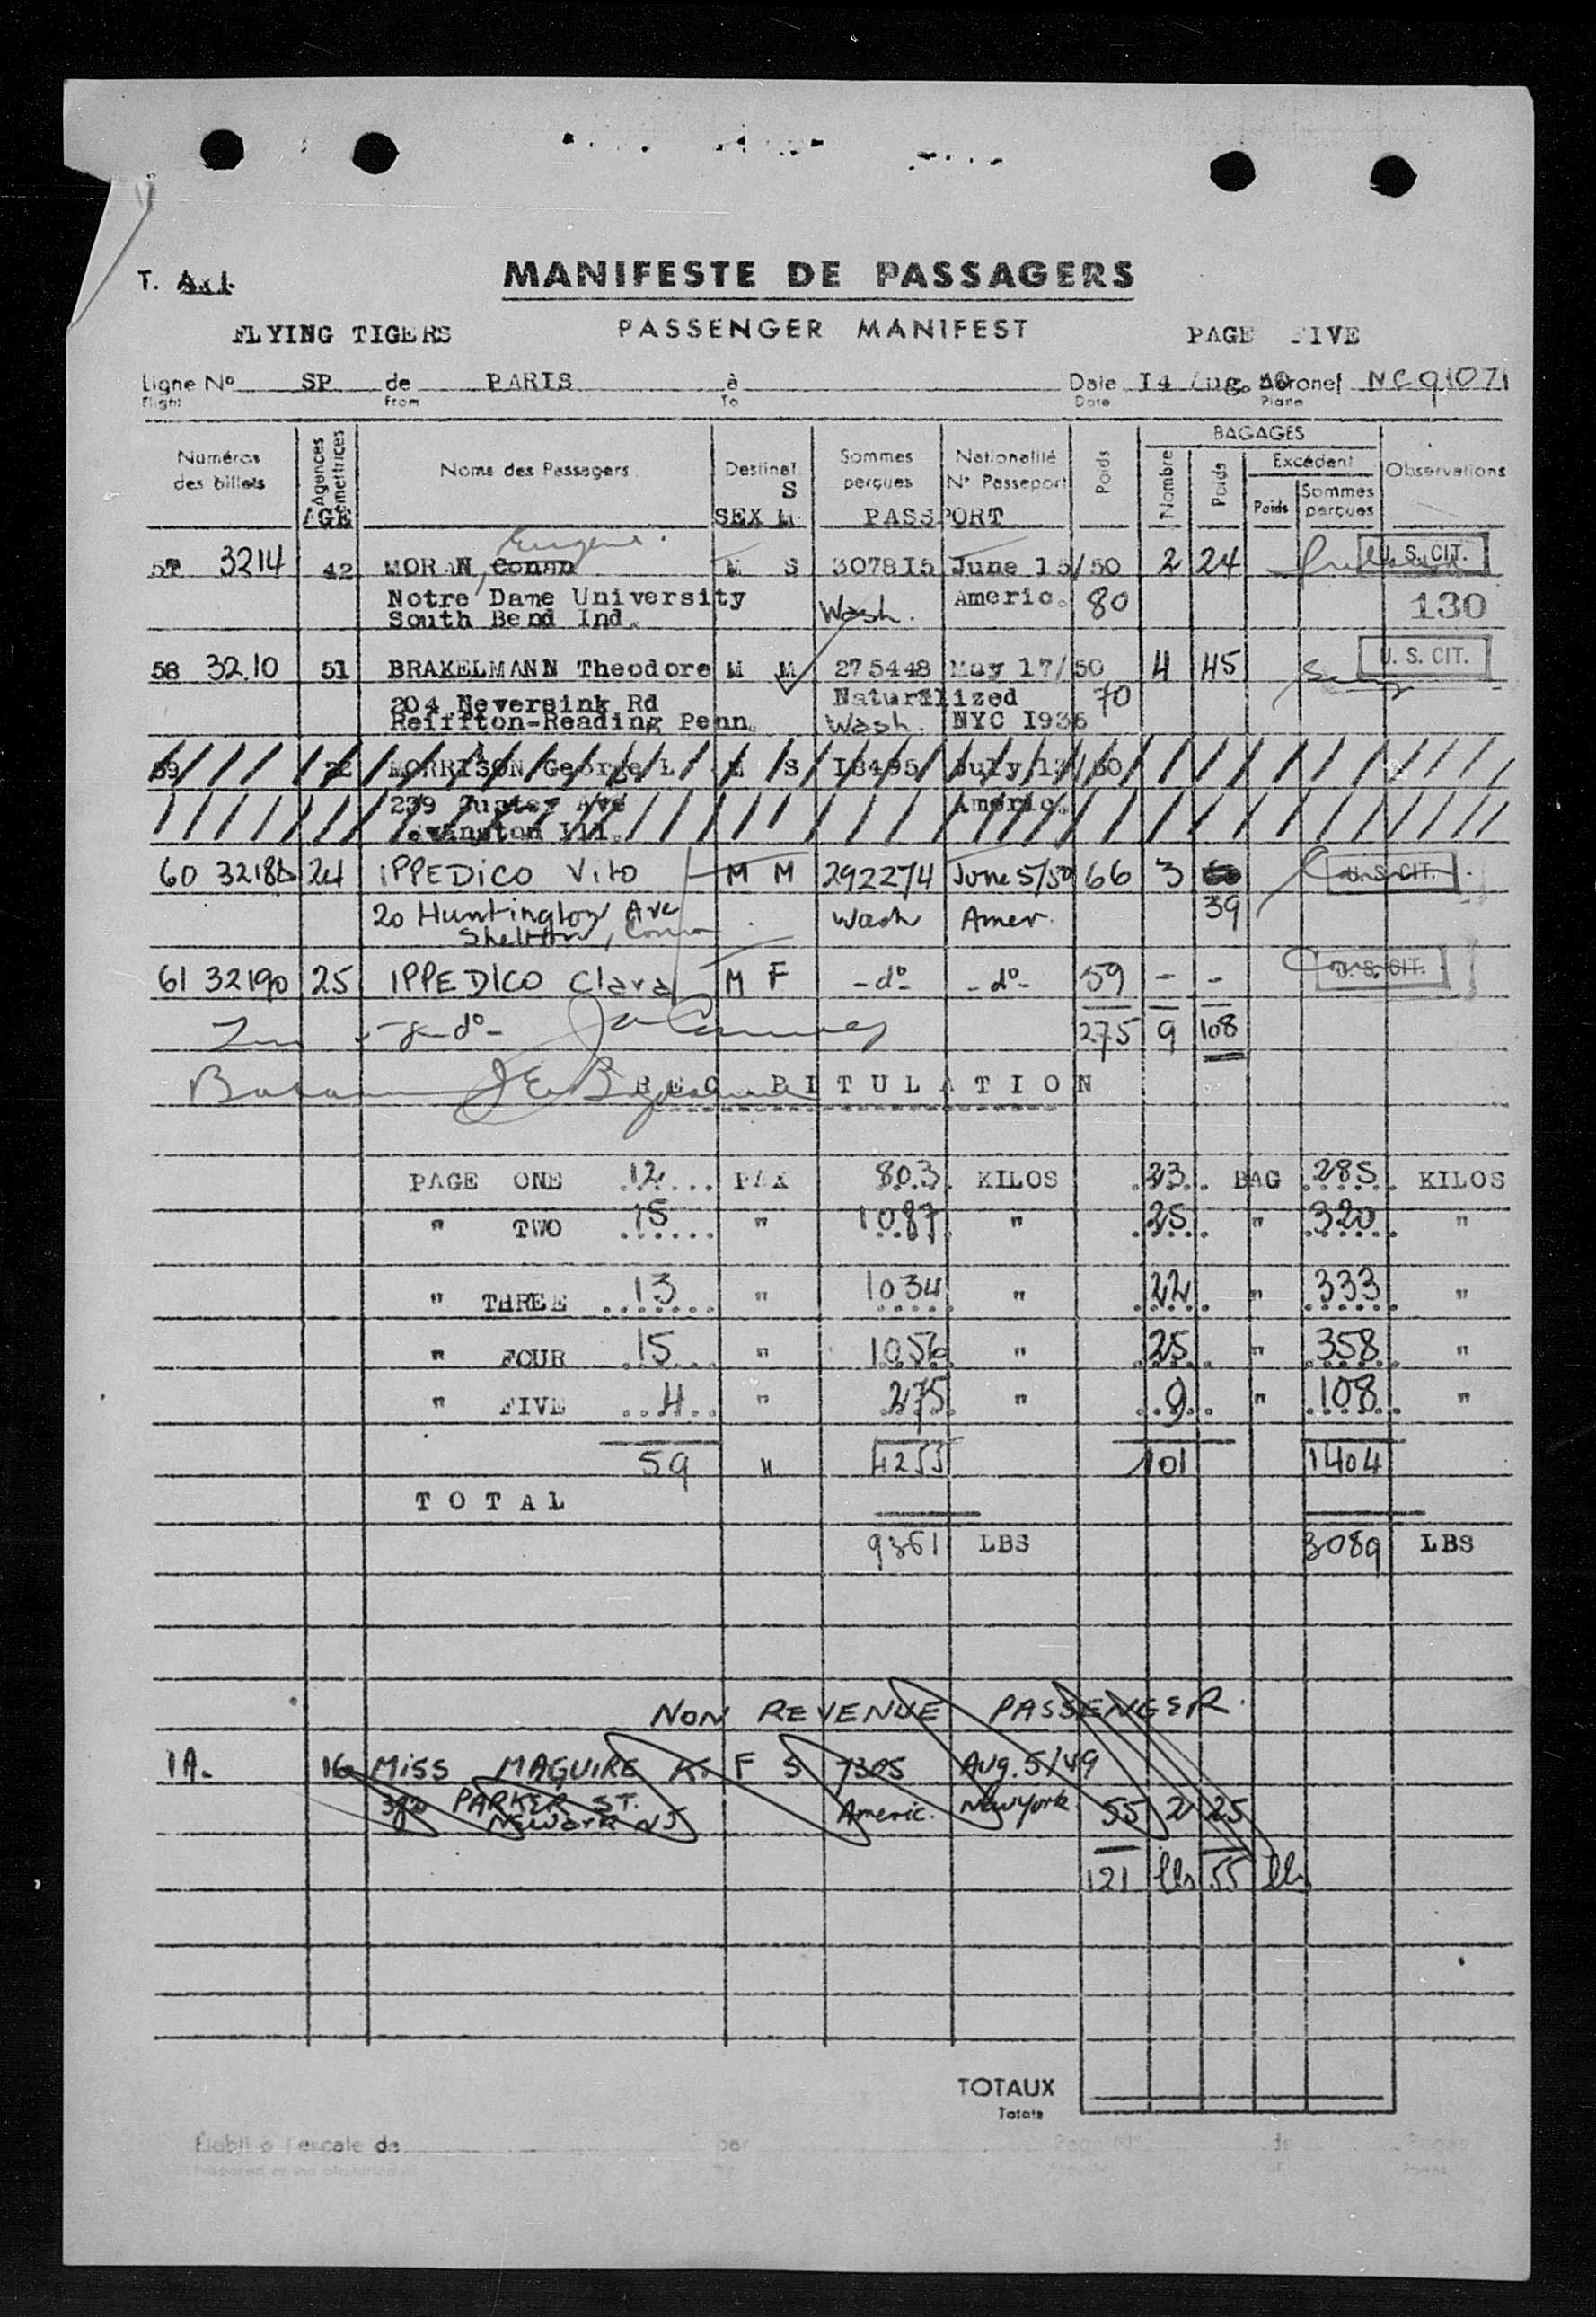 MANIFESTE DE PASSAGERS
T.
FLYING TIGERS PASSENGER MANIFEST PAGE FIVE
Ligne No SP de PARIS à Date 14 Aug. 50 Aéronef NC91071
Flight From To Date Plane
Numéros des billets Agences émettrices AGE Noms des Passagers Destinat S SEX M Sommes perçues Nationalité No Passeport PASSPORT Poids BAGAGES Nombre Poids Excédent Poids Sommes perçues Observations
Eugene.
57 3214 42 MORAN, Conan M S 307815 June 15/50 2 24 U. S. CIT.
Notre Dame University Wash. Americ. 80 130
South Bend Ind.
58 3210 51 BRAKELMANN Theodore M M 275448 May 17/50 4 45 U. S. CIT.
204 Neversink Rd Naturilized 70
Reiffton-Reading Penn. Wash. NYC I936
59 72 MORRISON George L M S I8495 July 13/50
239 Custer Ave Americ.
Evanston Ill.
60 3218 24 IPPEDICO Vito M M 292274 June 5/50 66 3 U. S. CIT.
20 Huntington Ave Wash Amer. 39
Shelton, Conn
61 32190 25 IPPEDICO Clara M F -do- -do- 59 - - U. S. CIT.
-do- 275 9 108
RECAPITULATION
PAGE ONE 12 PAX 803 KILOS 23 BAG 285 KILOS
" TWO 15 " 1087 " 25 " 320 "
" THREE 13 " 1034 " 22 " 333 "
" FOUR 15 " 1056 " 25 " 358 "
" FIVE 4 " 275 " 9 " 108 "
59 " 4255 101 1404
TOTAL
9361 LBS 3089 LBS
NON REVENUE PASSENGER.
1A. 16 MISS MAGUIRE K. F S 7305 Aug. 5/49
392 PARKER ST. Americ. New York 55 2 25
Newark NJ
121 lbs 55 lbs
TOTAUX
Totals
Établi à l'escale de par